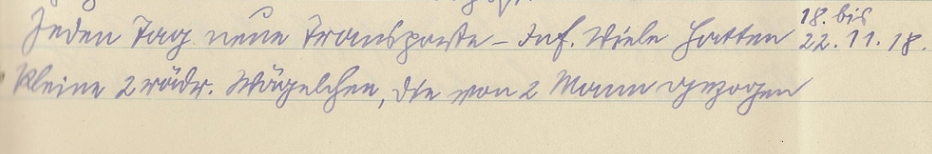 Jeden Tag neue Transporte - Inf. Viele hatten 18. bis
22. 11. 18.
kleine 2 rädr. Wägelchen, die von 2 Mann gezogen